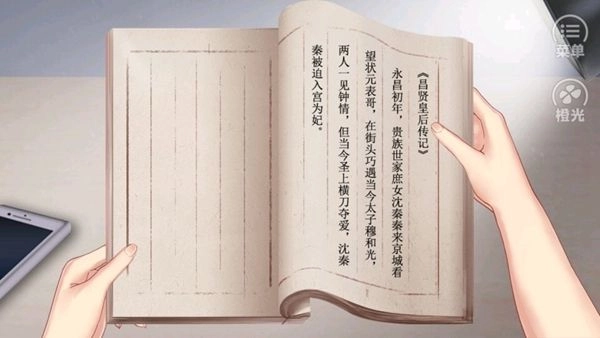 《昌贤皇后传记》
永昌初年，贵族世家庶女沈秦秦来京城看
望状元表哥，在街头巧遇当今太子穆和光，
两人一见钟情，但当今圣上横刀夺爱，沈秦
秦被迫入宫为妃。
菜单
橙光